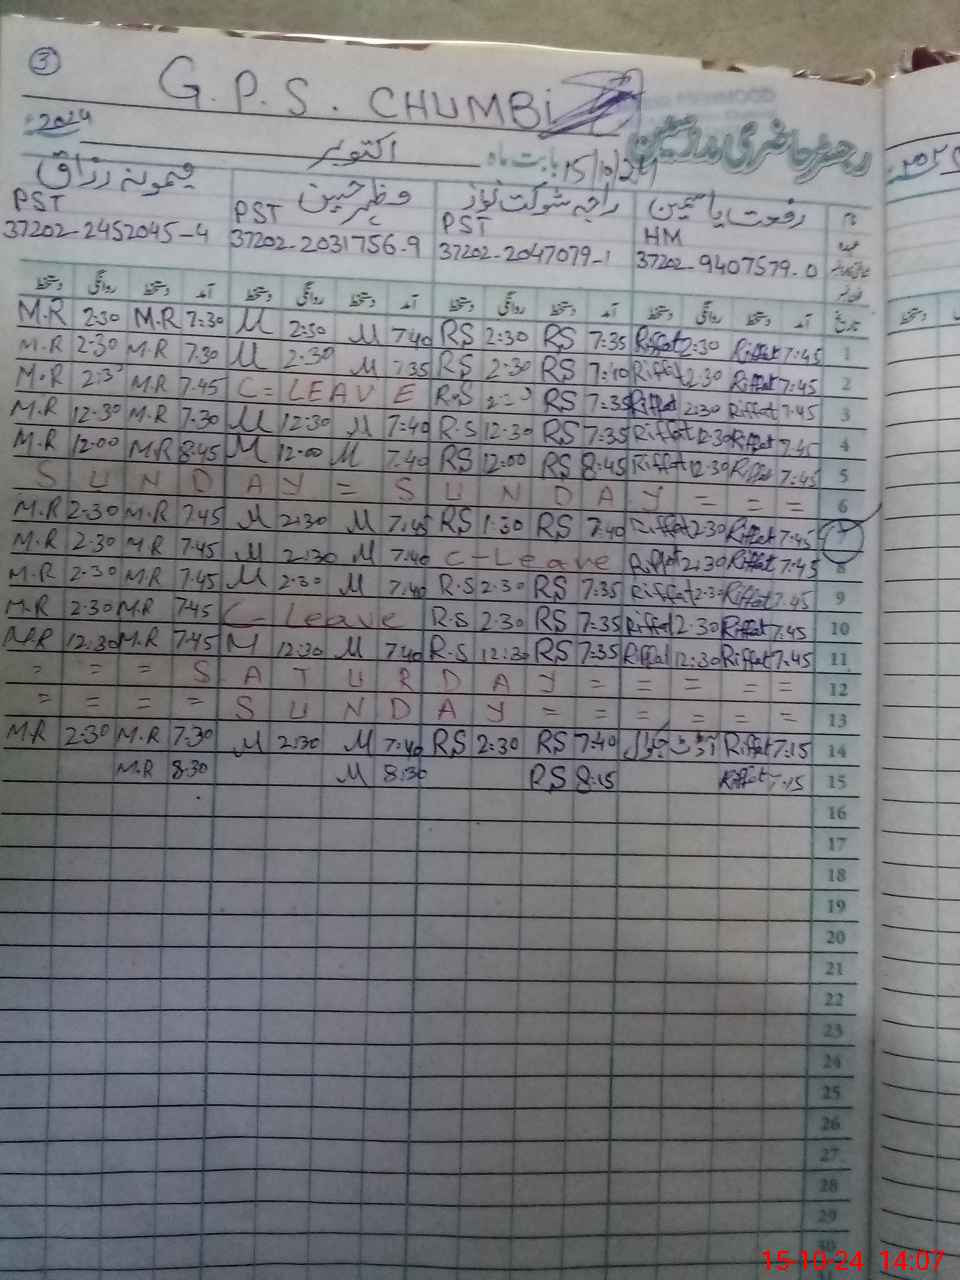 3
G. P. S. CHUMBi
2024
رجسٹر حاضری مدرسین
بابت ماہ اکتوبر 15/10/24
رفعت یاسمین راجہ شوکت نواز مظہر حسین میمونہ رزاق
PST PST PST HM
37202-2452045-4 37202-2031756-9 37202-2047079-1 37202-9407579-0
تاریخ آمد دستخط روانگی دستخط آمد دستخط روانگی دستخط آمد دستخط روانگی دستخط آمد دستخط روانگی دستخط
M.R 2:30 M.R 7:30 M 2:30 M 7:40 RS 2:30 RS 7:35 Riffat 2:30 Riffat 7:45 1
M.R 2:30 M.R 7.30 M 2:30 M 7:35 RS 2:30 RS 7:40 Riffat 2:30 Riffat 7:45 2
M.R M.R 7.45 C= LEAVE R.S RS 7:35 Riffat 2:30 Riffat 7.45 3
M.R 12.30 M.R 7.30 M 12:30 M 7:40 R.S 12:30 RS 7:35 Riffat 12:30 Riffat 7.45 4
M.R 12:00 M.R 8:45 M 12:00 M 7.40 RS 12:00 RS 8:45 Riffat 12:30 Riffat 7:45 5
S U N D A Y = S U N D A Y = = = 6
M.R 2:30 M.R 7.45 M 2:30 M 7:45 RS 1:30 RS 7:40 Riffat 2:30 Riffat 7:45 7
M.R 2:30 M.R 7.45 M 2:30 M 7:40 C-Leave Riffat 2:30 Riffat 7:45 8
M.R 2:30 M.R 7.45 M 2:30 M 7:40 R.S 2:30 RS 7:35 Riffat 2:30 Riffat 7.45 9
M.R 2:30 M.R 7.45 C- Leave R.S 2:30 RS 7:35 Riffat 2:30 Riffat 7:45 10
M.R 12:30 M.R 7.45 M 12:30 M 7:40 R.S 12:30 RS 7:35 Riffat 12:30 Riffat 7:45 11
= = = S A T U R D A Y = = = = 12
= = = = S U N D A Y = = = = = 13
M.R 2:30 M.R 7.30 M 2:30 M 7:40 RS 2:30 RS 7:40 Riffat 7:15 14
M.R 8:30 M 8:30 RS 8:15 Riffat 7:15 15
16
17
18
19
20
21
22
23
24
25
26
27
28
29
30
15-10-24 14:07